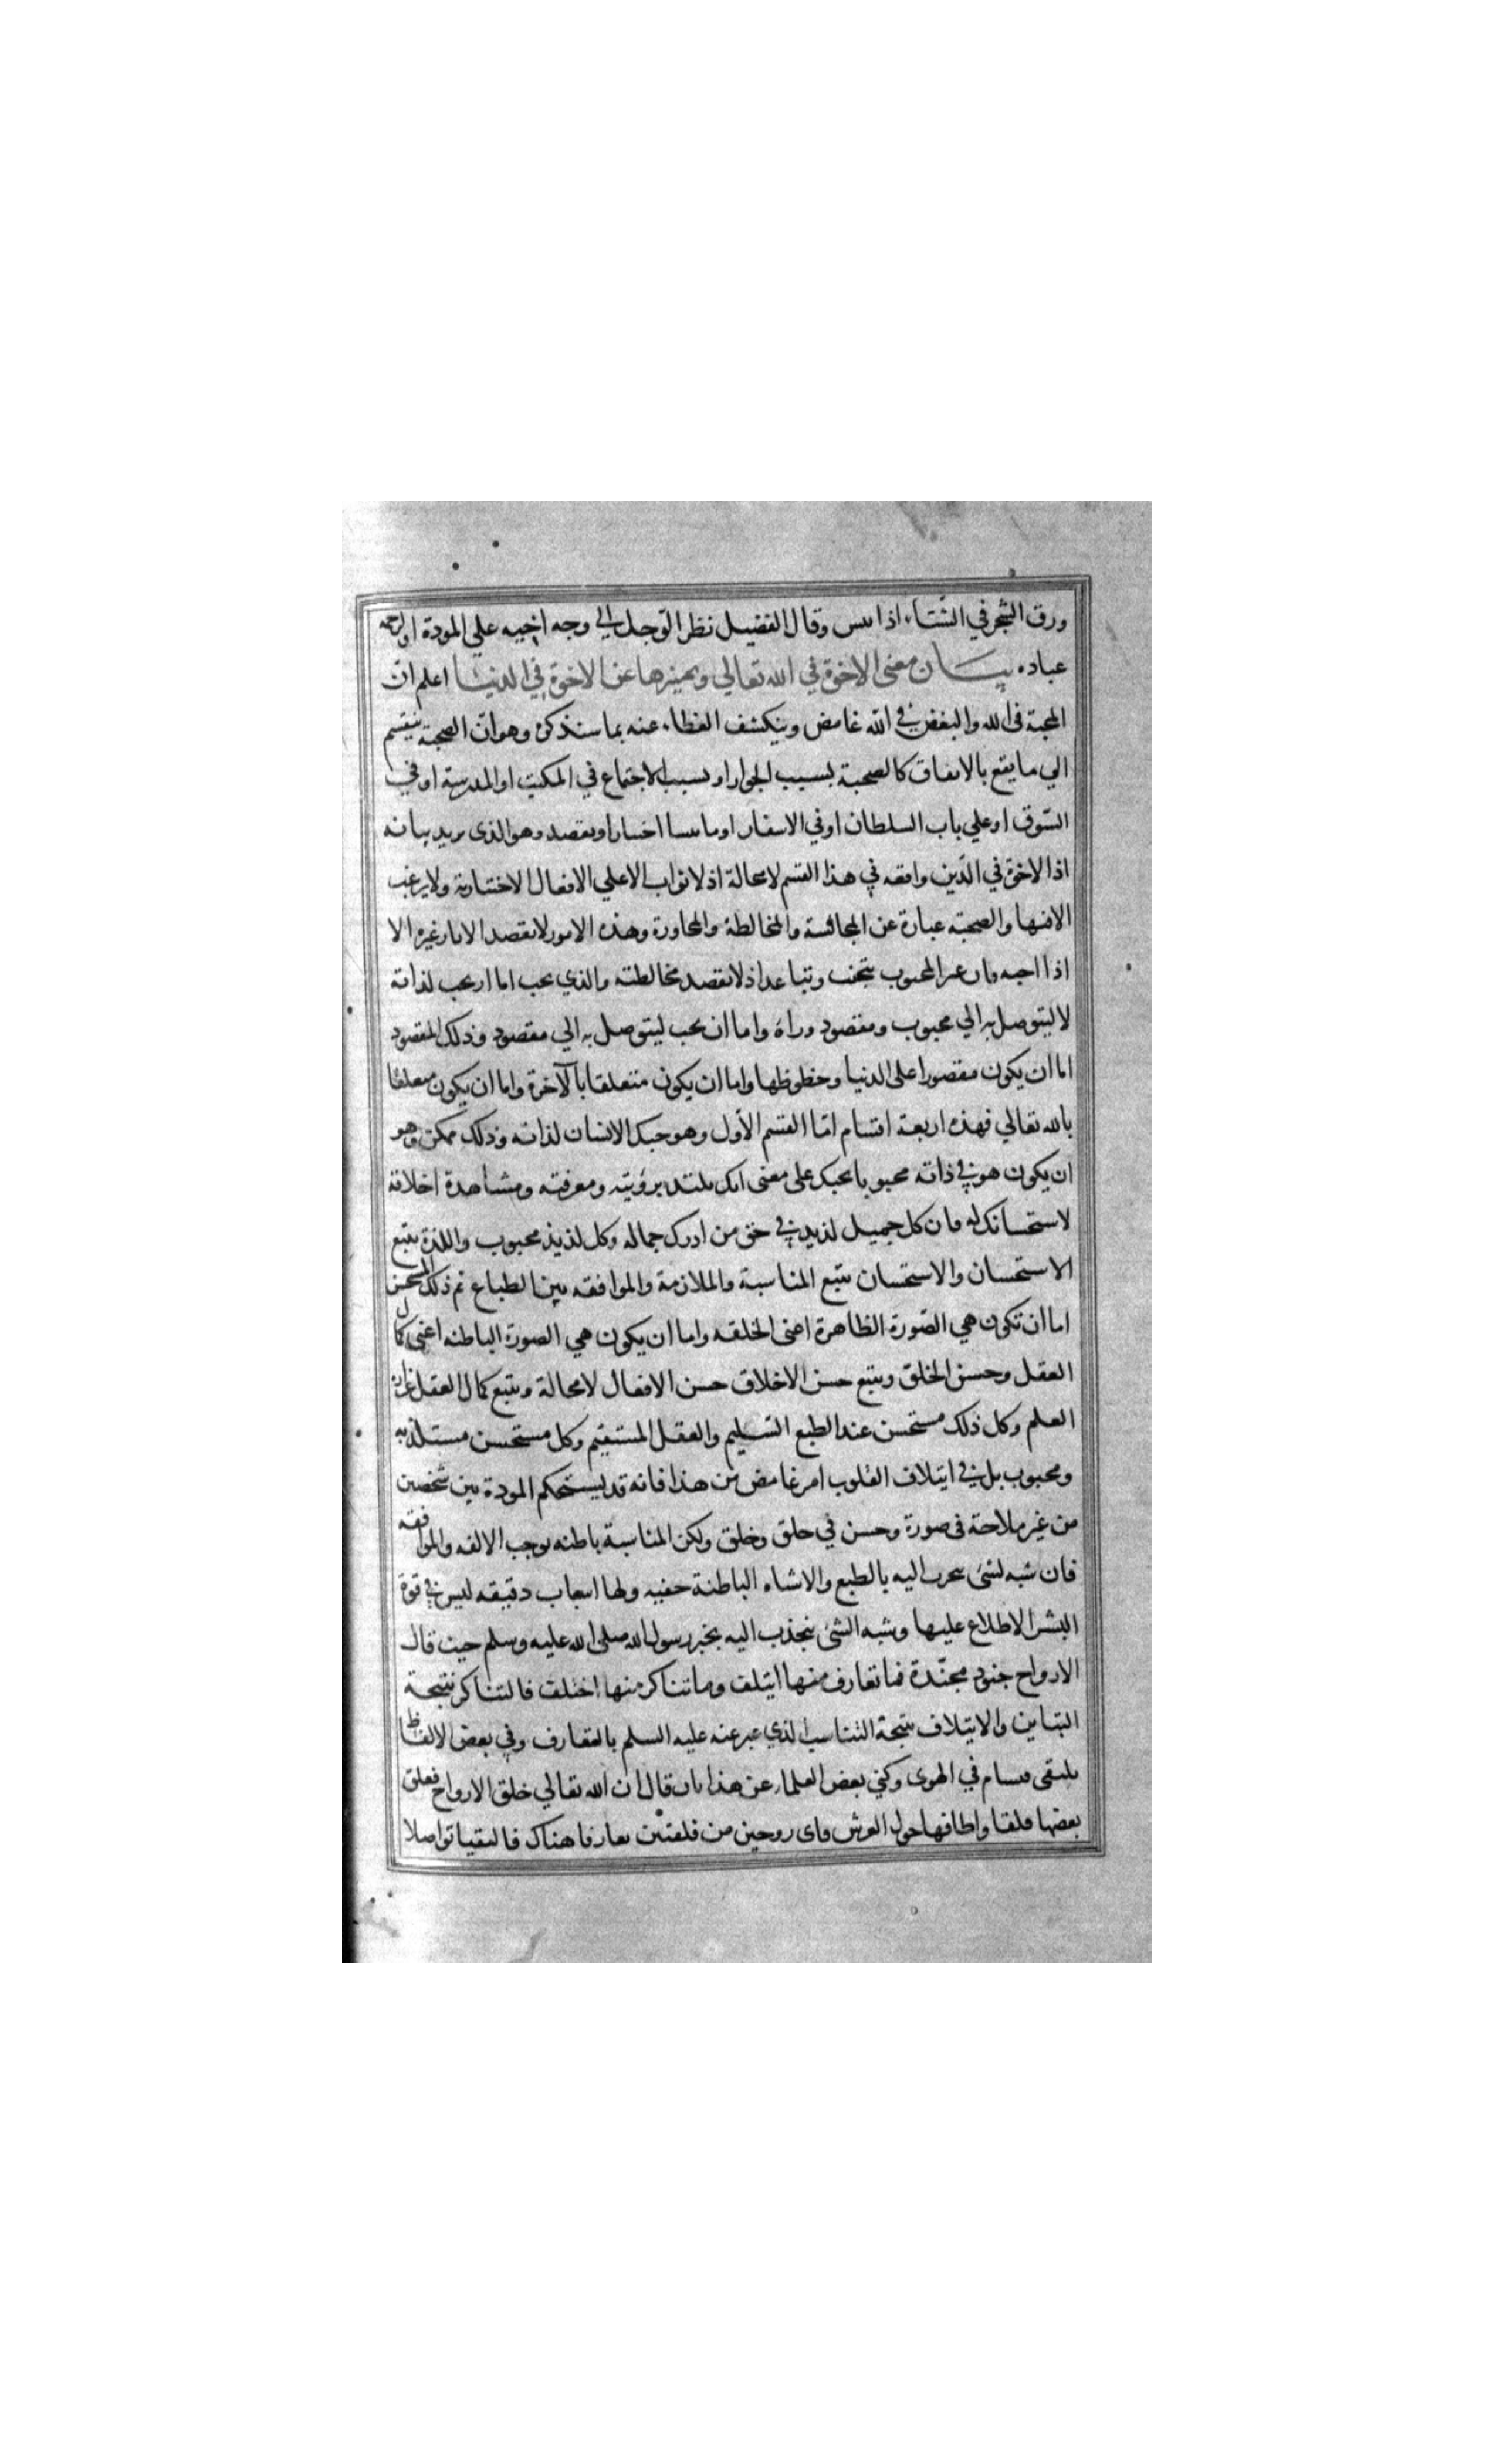 ورق الشجر في الشتاء اذا يبس وقال الفضيل نظر الرجل الي وجه اخيه علي المودة والرحمة
عباده بيان معني الاخوة في الله تعالي وتميزها عن الاخوة في الدنيا اعلم ان
المحبة في الله والبغض في الله غامض وينكشف الغطاء عنه بما سنذكره وهو ان الصحبة ينقسم
الي ما يقع بالاتفاق كالصحبة بسبب الجوار او بسبب الاجتماع في المكتب او المدرسة او في
السوق او علي باب السلطان او في الاسفار او ما ينشا اختيارا ويقصد وهو الذي نريد بيانه
اذا الاخوة في الدين واقعه في هذا القسم لا محالة اذ لا ثواب الا علي الافعال الاختيارية ولا يرغب
الا فيها والصحبة عبارة عن المجالسة والمخالطة والمجاورة وهذه الامور لا يقصد الانسان غيره الا
اذا احبه فان غير المحبوب يتجنب ويتباعد اذ لا تقصد مخالطته والذي يحب اما ان يحب لذاته
لا ليتوصل به الي محبوب ومقصود وراه واما ان يحب ليتوصل به الي مقصود وذلك المقصود
اما ان يكون مقصورا علي الدنيا وحظوظها واما ان يكون متعلقا بالآخرة واما ان يكون متعلقا
بالله تعالي فهذه اربعة اقسام امّا القسم الأول وهو حبك الانسان لذاته وذلك ممكن وهو
ان يكون هو في ذاته محبوبا بحبك علي معني انك تلتذ برؤيته ومعرفته ومشاهدة اخلاقه
لاستحسانك له فان كل جميل لذيذ في حق من ادرك جماله وكل لذيذ محبوب واللذة يتبع
الاستحسان والاستحسان يتبع المناسبة والملازمة والموافقه بين الطباع ثم ذلك المستحسن
اما ان تكون هي الصورة الظاهرة اعني الخلقه واما ان يكون هي الصورة الباطنه اعني كمال
العقل وحسن الخلق ويتبع حسن الاخلاق حسن الافعال لا محالة ويتبع كمال العقل غزارة
العلم وكل ذلك مستحسن عند الطبع السليم والعقل المستقيم وكل مستحسن مستلذ به
ومحبوب بل في ايتلاف القلوب امر غامض من هذا فانه قد يستحكم المودة بين شخصين
من غير ملاحة في صورة وحسن في خلق وخلق ولكن المناسبة باطنه توجب الالفه والموافقه
فان شبه لشئ ينجذب اليه بالطبع والاشباه الباطنة خفيه ولها اسباب دقيقه ليس في قوة
البشر الاطلاع عليها وشبه الشئ ينجذب اليه بخبر رسول الله صلي الله عليه وسلم حيث قال
الارواح جنود مجنّدة فما تعارف منها ايتلف وما تناكر منها اختلف فالتناكر نتيجة
التباين والايتلاف نتيجة التناسب الذي عبر عنه عليه السلم بالتعارف وفي بعض الالفاظ
يلتقي فيتسام في الهوي وكني بعض العلماء عن هذا بان قال ان الله تعالي خلق الارواح ففلق
بعضها فلقا واطافها حول العرش فاي روحين من فلقتين تعارفا هناك فالتقيا تواصلا